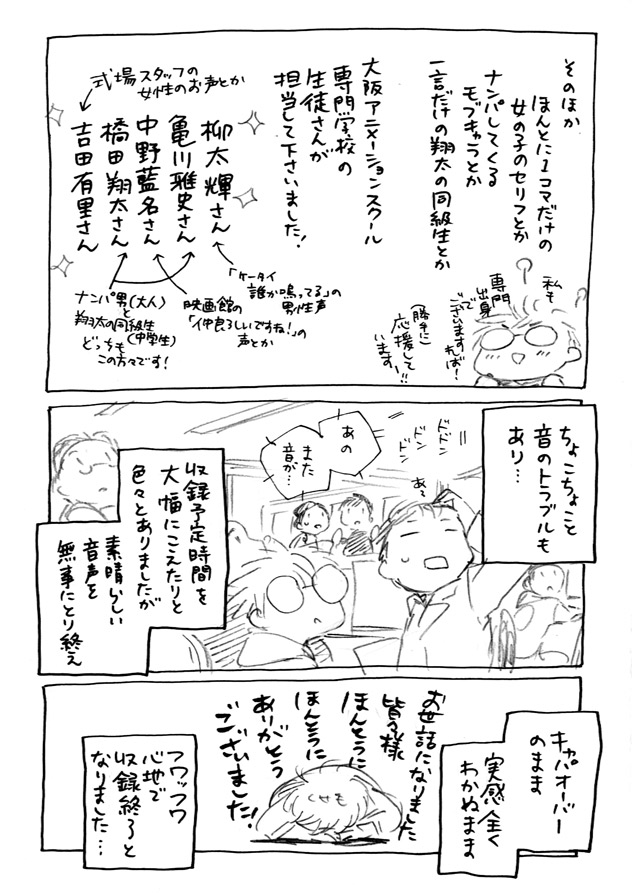 そのほか
ほんとに1コマだけの
女の子のセリフとか
ナンパしてくる
モブキャラとか
一言だけの翔太の同級生とか
大阪アニメーションスクール
専門学校の
生徒さんが
担当して下さいました!
式場スタッフの
女性のお声とか
柳太輝さん
亀川雅史さん
中野藍名さん
橋田翔太さん
吉田有里さん
「ケータイ
誰か鳴ってる」の
男性声
映画館の
「仲良ろしいですね!」の
声とか
ナンパ男(大人)
と
翔太の同級生
(中学生)
どっちも
この方々です!
私も
専門
出身
で
ございますれば!
(勝手に)
応援して
います!!
ちょこちょこと
音のトラブルも
あり…
ドドン
ドン
ドン
あ〜
あの
また
音が…
収録予定時間を
大幅にこえたりと
色々とありましたが
素晴らしい
音声を
無事にとり終え
キャパオーバー
のまま
実感全く
わかぬまま
お世話になりました
皆々様
ほんとうに
ほんとうに
ありがとう
ございました!
フワッフワ
心地で
収録終了と
なりました…